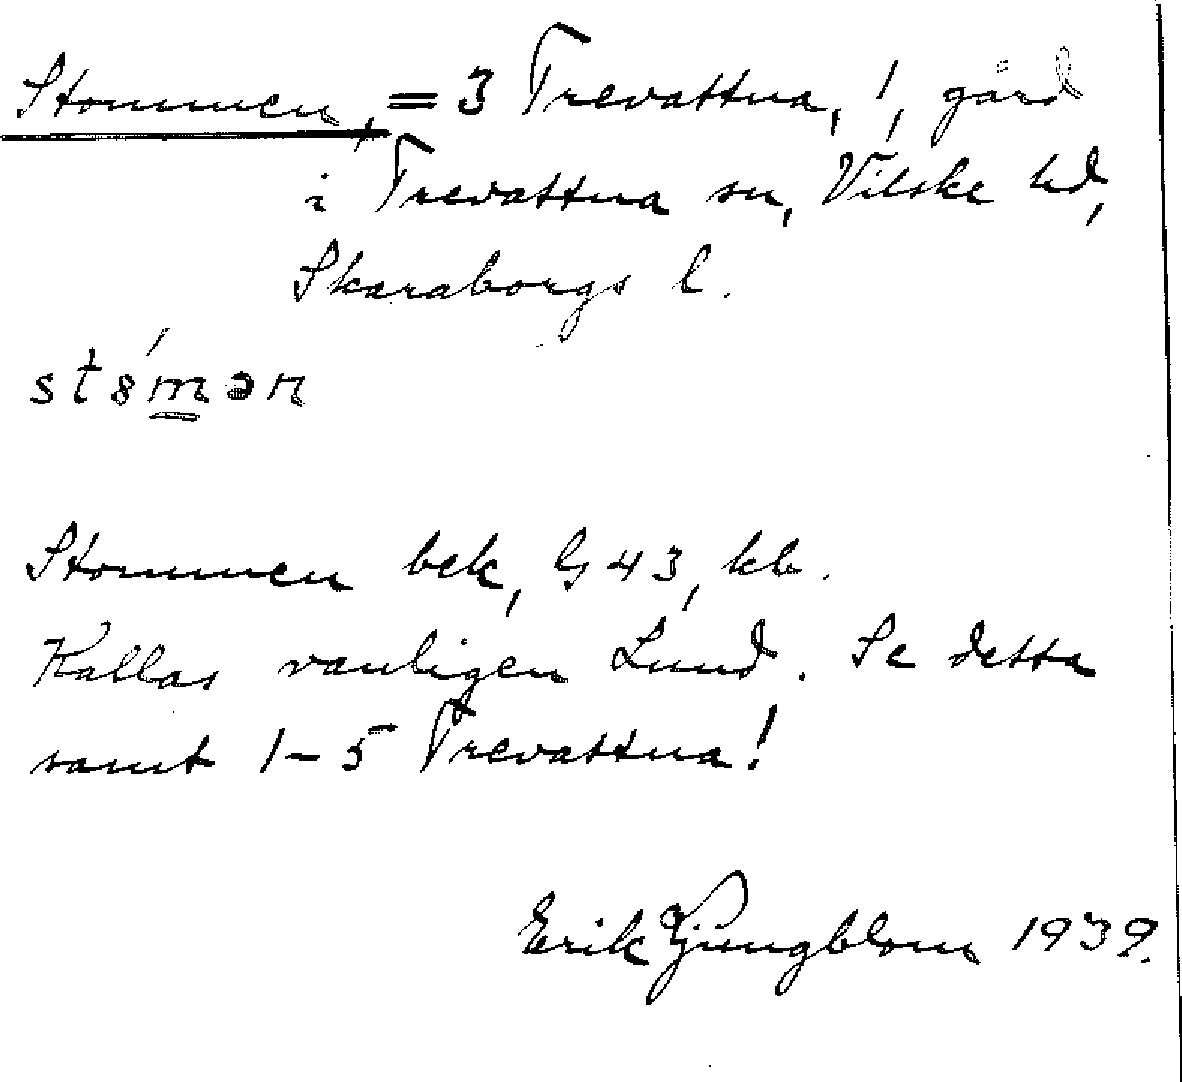 Stommen, = 3 Trevattna, 1, gård
i Trevattna sn, Vilske hd,
Skaraborgs l.
st8́m̲ən
Stommen bek, G 43, kb.
Kallas vanligen Lund. Se detta
samt 1–5 Trevattna!
Erik Ljungblom 1939.